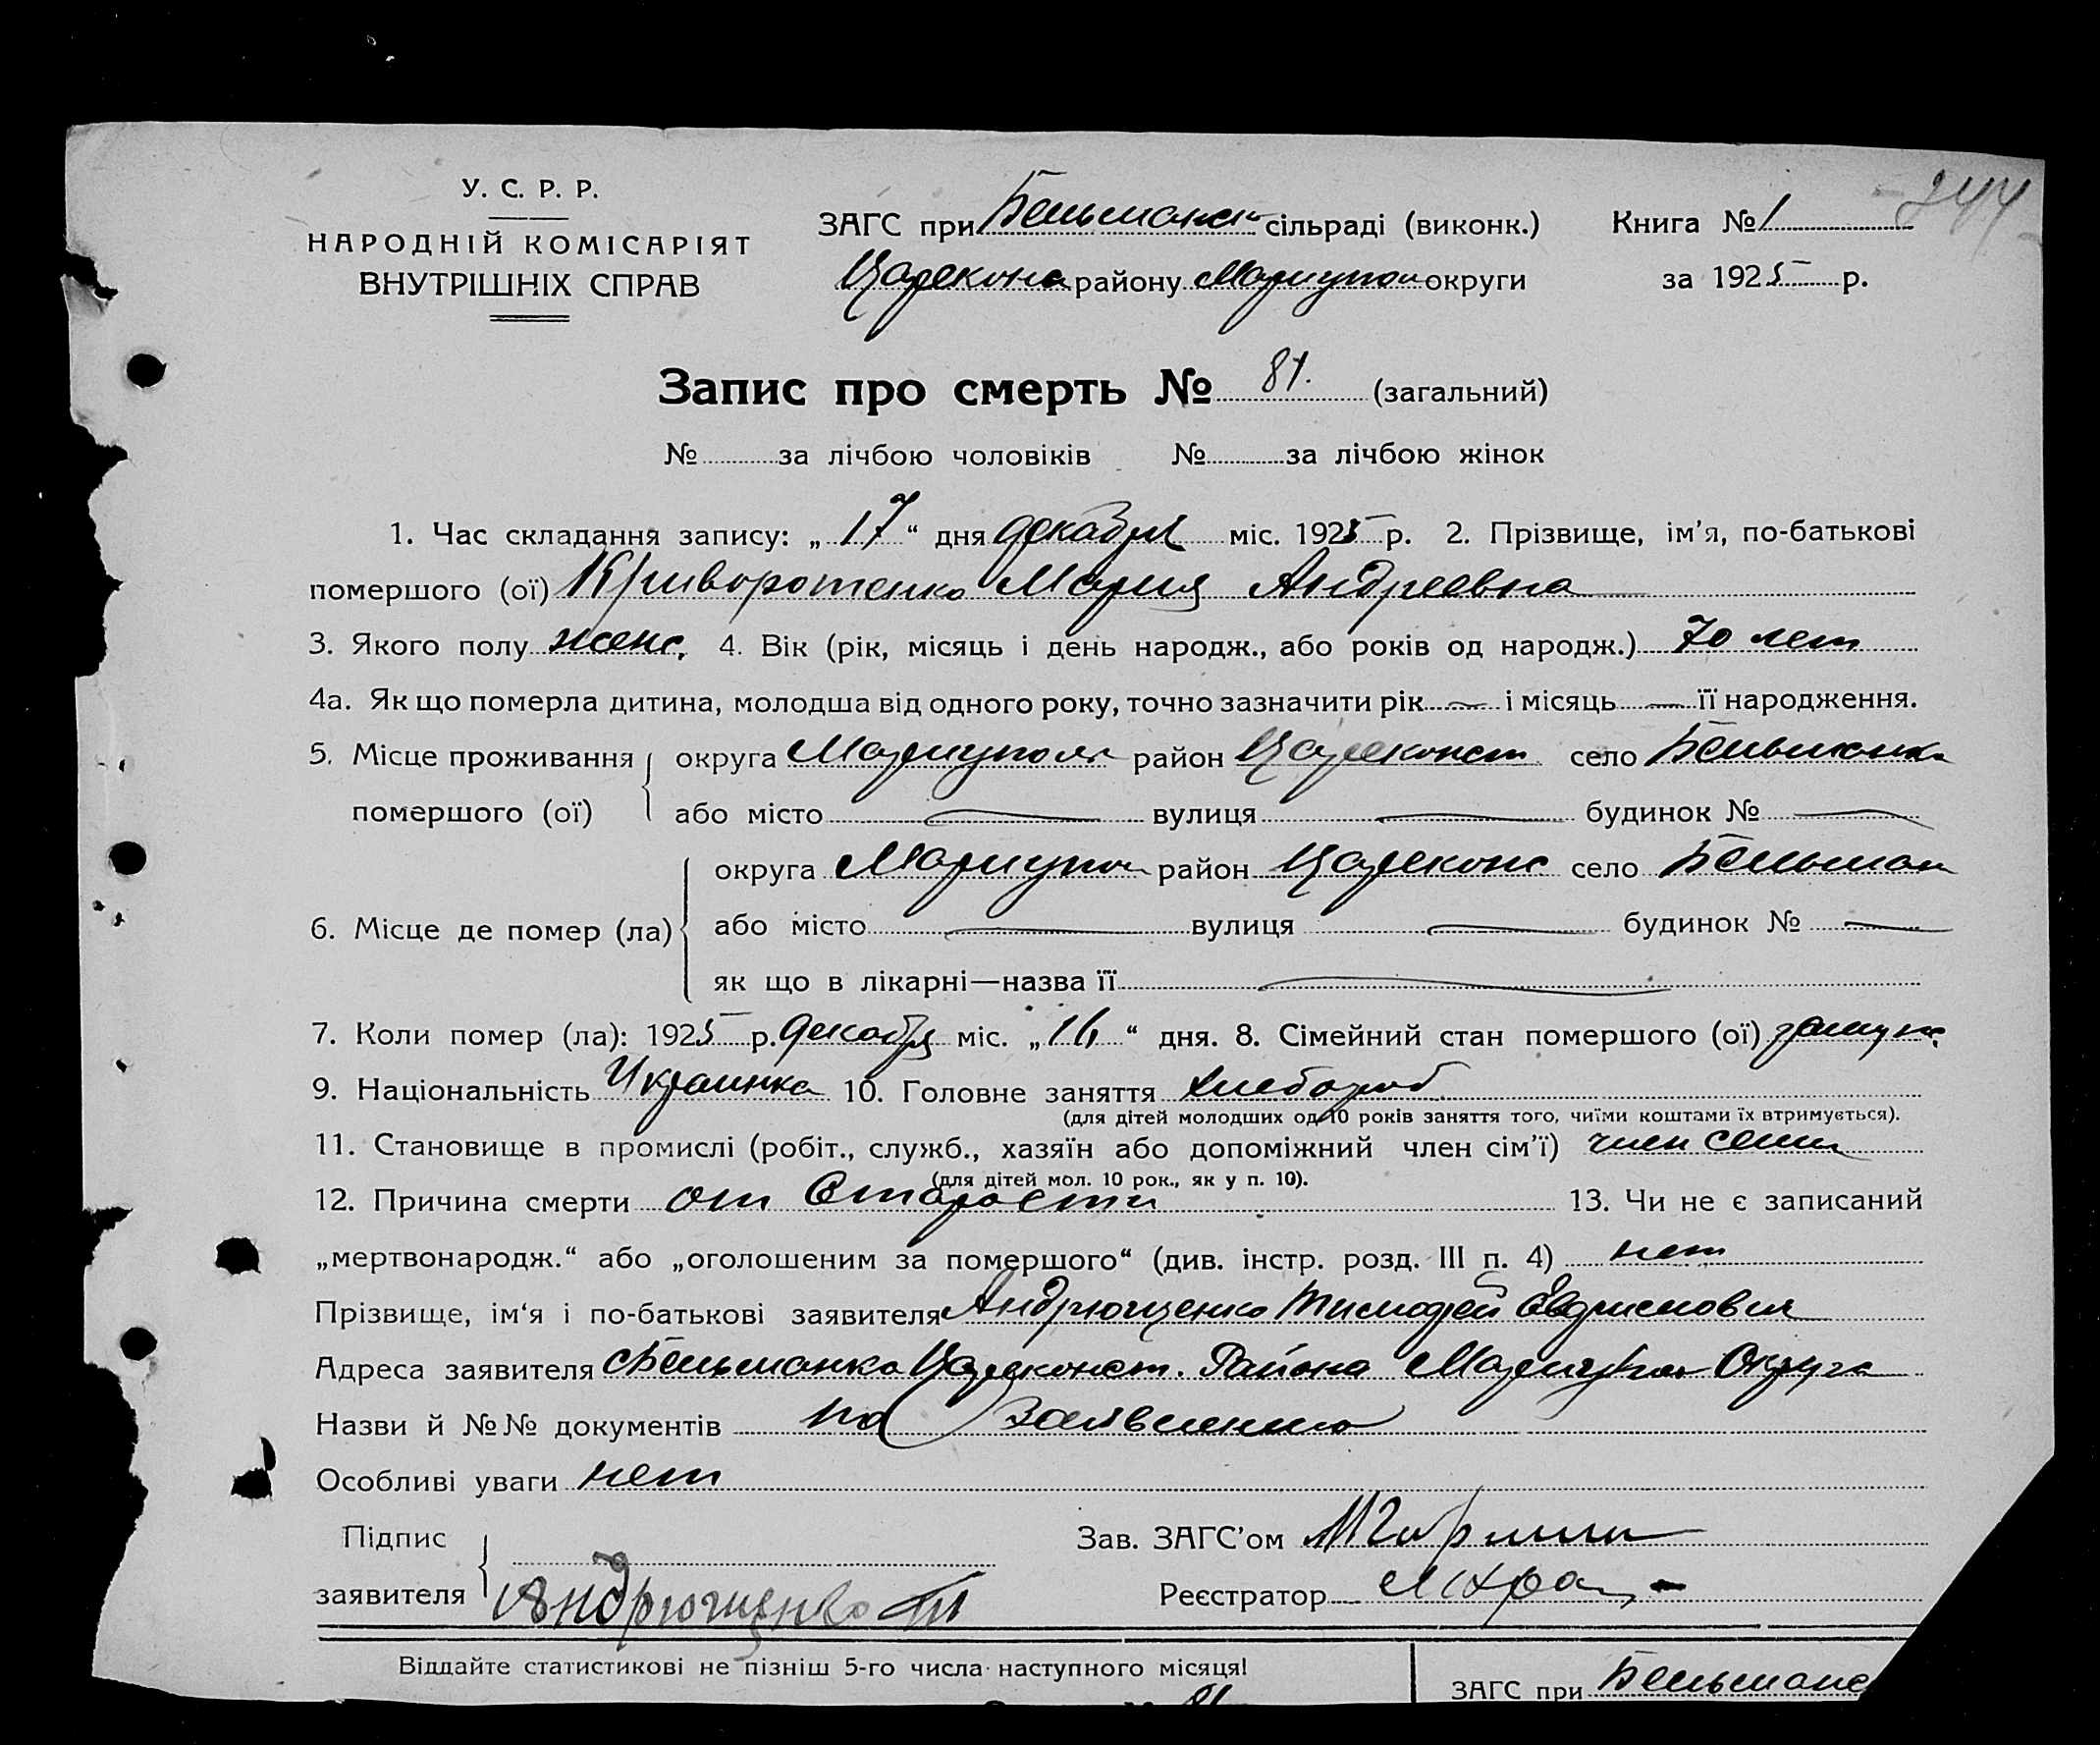 244
У. С. Р. Р.
НАРОДНІЙ КОМІСАРІЯТ
ВНУТРІШНІХ СПРАВ
ЗАГС при Бельманск сільраді (виконк.)
Цареконс району Мариупол округи
Книга № 1
за 1925 р.
Запис про смерть № 81. (загальний)
№ за лічбою чоловіків № за лічбою жінок
1. Час складання запису: „ 17 “ дня декабря міс. 1925 р. 2. Прізвище, ім’я, по-батькові
помершого (ої) Криворотенко Мария Андреевна
3. Якого полу женс. 4. Вік (рік, місяць і день народж., або років од народж.) 70 лет
4а. Як що померла дитина, молодша від одного року, точно зазначити рік — і місяць — її народження.
5. Місце проживання округа Мариуполь район Цареконст село Бельманка
помершого (ої) або місто — вулиця — будинок № —
округа Мариупол район Цареконс село Бельман
6. Місце де помер (ла) або місто — вулиця — будинок № —
як що в лікарні—назва її —
7. Коли помер (ла): 1925 р. декабря міс. „ 16 “ дня. 8. Сімейний стан помершого (ої) замуж.
9. Національність Украинка 10. Головне заняття хлебороб
(для дітей молодших од 10 років заняття того, чиїми коштами їх втримується).
11. Становище в промислі (робіт., служб., хазяїн або допоміжний член сім’ї) член семи
(для дітей мол. 10 рок., як у п. 10).
12. Причина смерти от Старости 13. Чи не є записаний
„мертвонародж.“ або „оголошеним за помершого“ (див. інстр. розд. III п. 4) нет
Прізвище, ім‘я і по-батькові заявителя Андрющенко Тимофей
Адреса заявителя с Бельманка Цареконст. Района Мариупол Округа
Назви й №№ документів по Заявлению
Особливі уваги нет
Підпис
заявителя Андрющенко Т
Зав. ЗАГС’ом
Реєстратор
Віддайте статистикові не пізніш 5-го числа наступного місяця!
81
ЗАГС при Бельманс